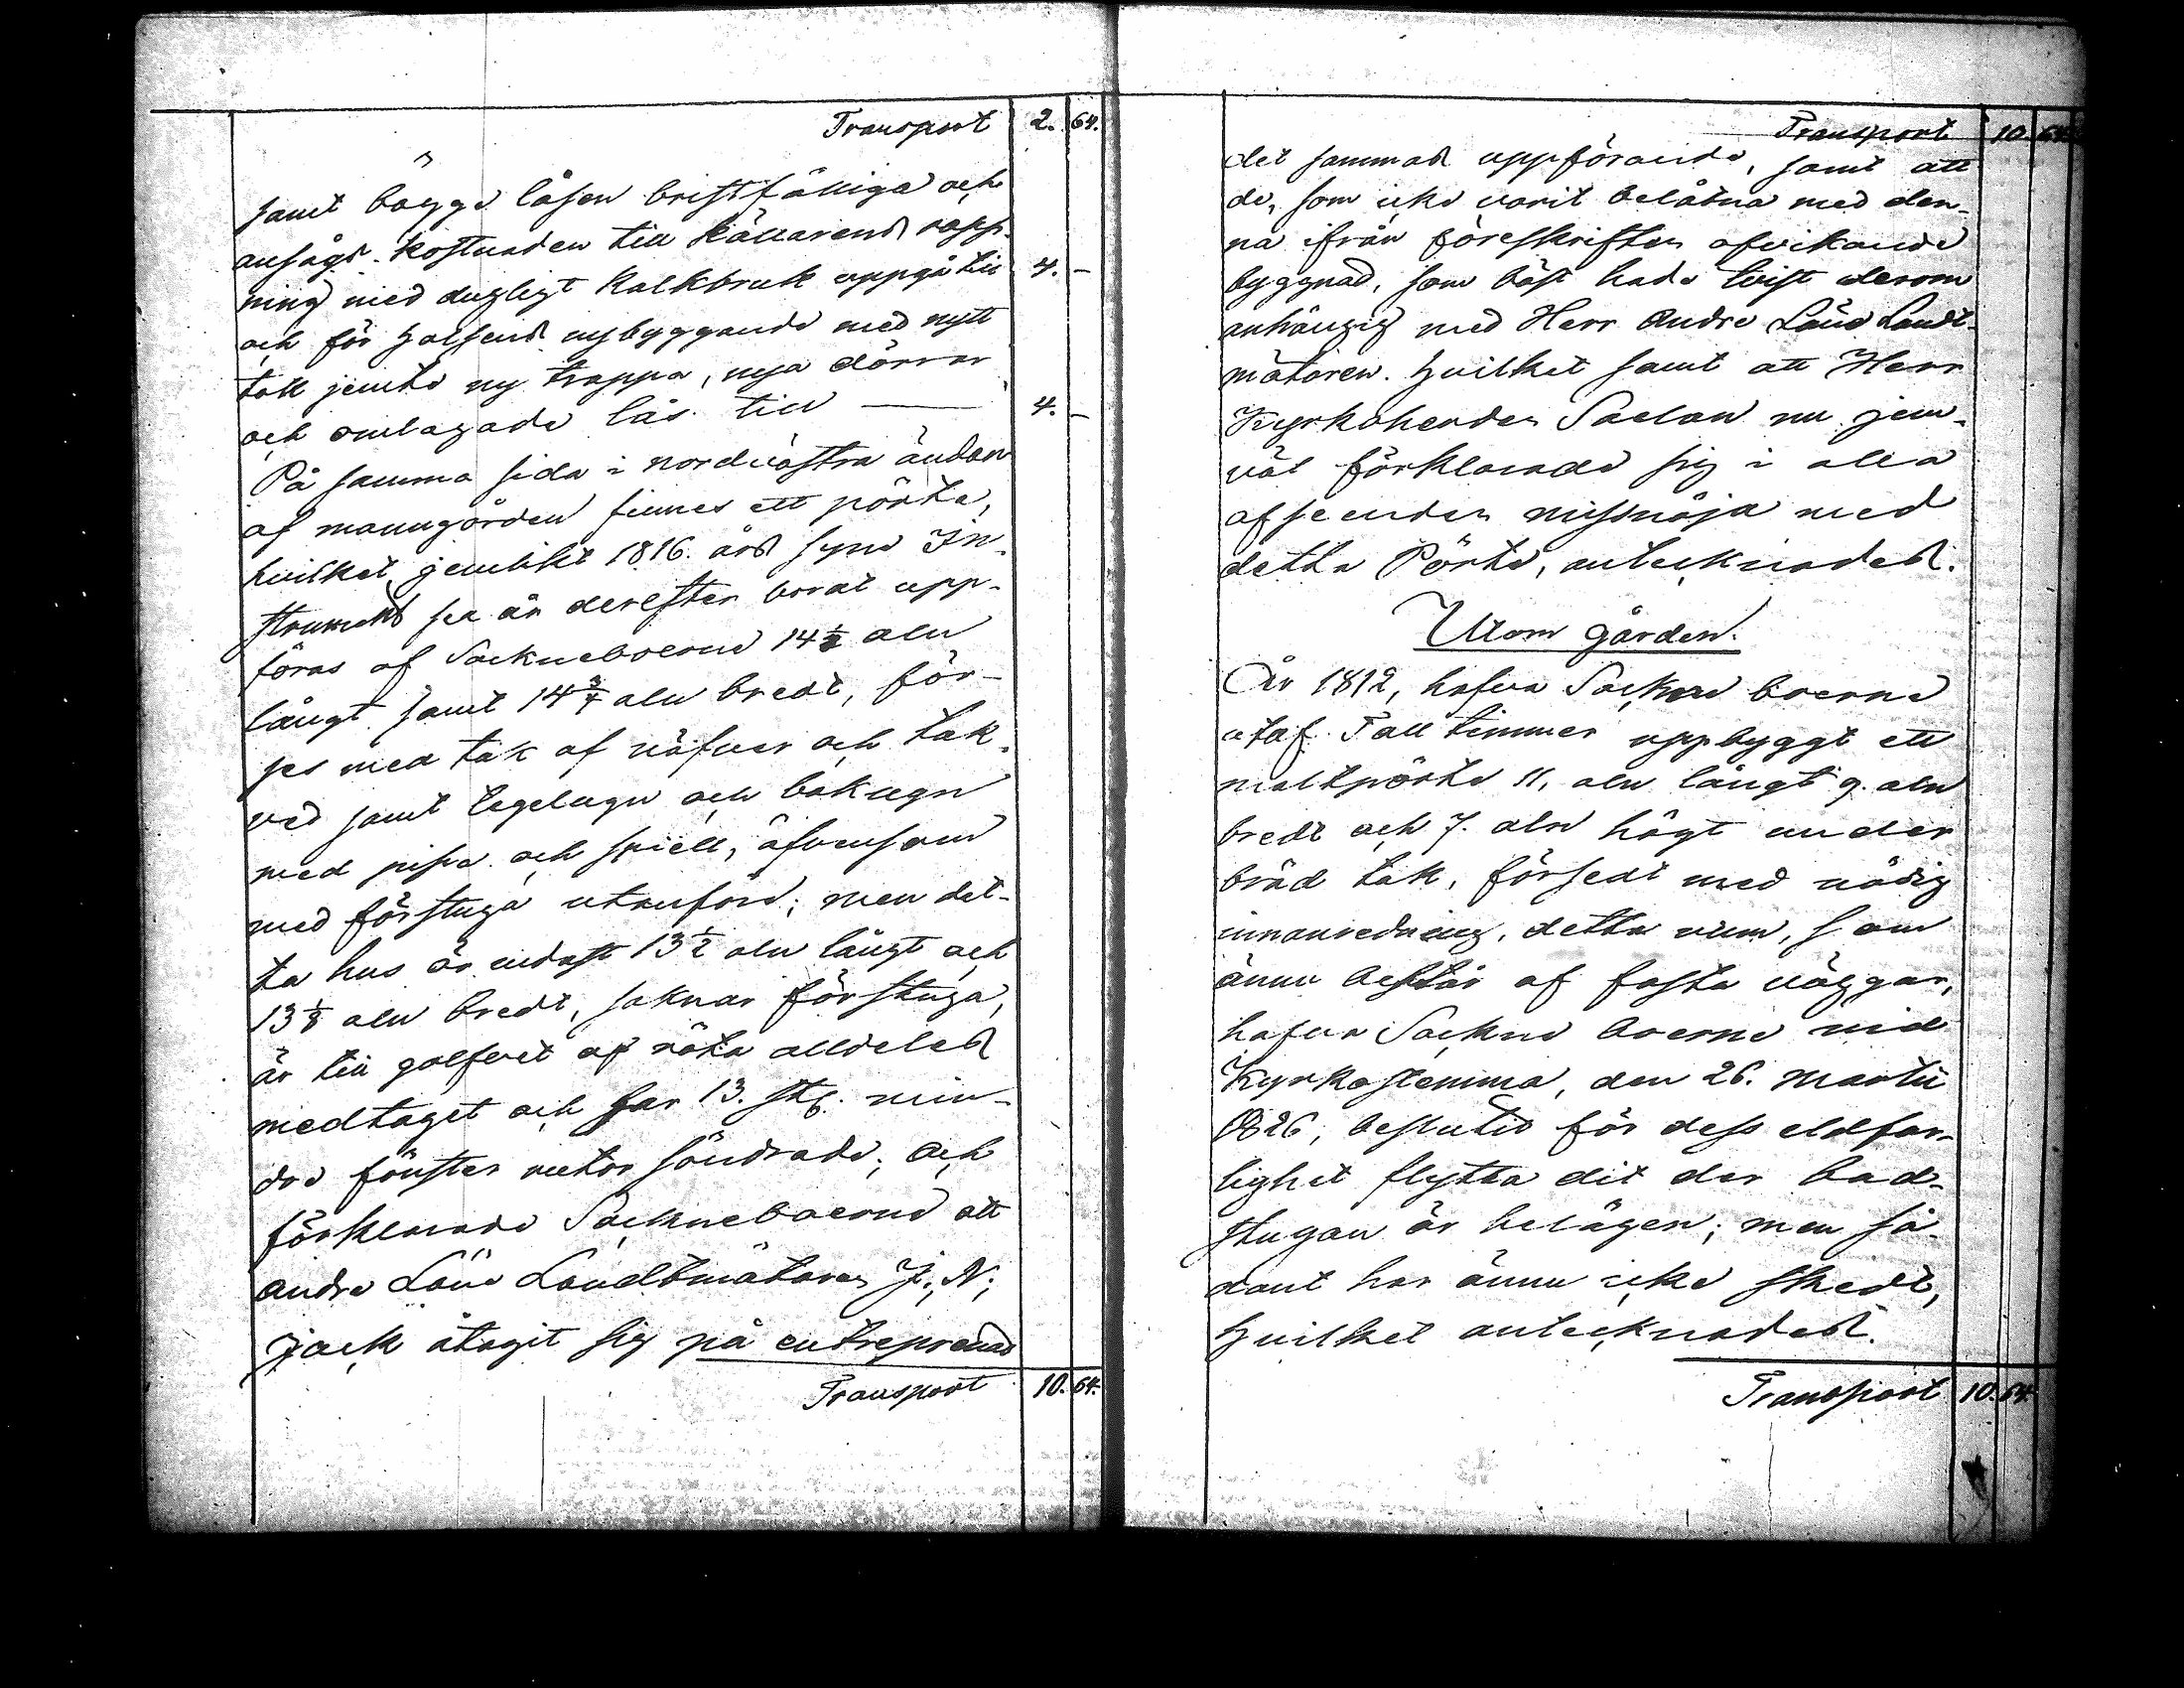 Transport 2. 64.
samt bägge låsen bristfälliga och
ansågs kostnaden till Källarens rapp-
ning med dugligt Kalkbruk uppgå till 4. -
och för halsens nybyggande med nytt
tak jemte ny trappa, nya dörrar
och omlagade lås till — 4. -
På samma sida i nordvästra ändan
af manngården finnes ett pörte,
hvilket jemlikt 1816. års syns In-
struments sex år derefter borat upp-
föras af Sockneboerne 14 1/2 aln
långt samt 14 3/4 aln bredt, för-
ses med tak af näfver och tak-
ved samt tegelugn och bakugn
med pipa och spiell, äfvensom
med förstuga utanföre; men det-
ta hus är endast 13 1/2 aln långt och
13 1/8 aln bredt, saknar förstuga,
är till golfvet af röta alldeles
medtaget och har 13. st. min-
dre fönster rutor söndrade; och
förklarade Sockneboerne att
andre Läns Landtmätaren J. N.
Jack åtagit sig på entreprenad
Transport 10. 64.
Transport 10. 64.
det sammas uppförande, samt att
de, som icke varit belåtna med den-
na ifrån föreskriften afvikande
byggnad, som bäst hade tvist derom
anhängig med Herr Andre Läns Landt-
mätaren. Hvilket samt att Herr
Kyrkoherden Saelan nu jem-
väl förklarade sig i alla
afseenden missnöja med
detta Pörte, antecknades.
Utom gården.
År 1812, hafva Sockne boerne
utaf Tall timmer uppbyggt ett
maltpörte 11. aln långt 9. aln
bredt och 7. aln högt under
bräd tak, försedt med nödig
innanredning, detta rum, som
ännu består af fasta väggar,
hafva Sockne boerne vid
Kyrkostemma, den 26. Martii
1826, beslutit för dess eldfar-
lighet flytta dit der bad-
stugan är belägen; men så-
dant har ännu icke skedt,
Hvilket antecknades.
Transport 10. 64.